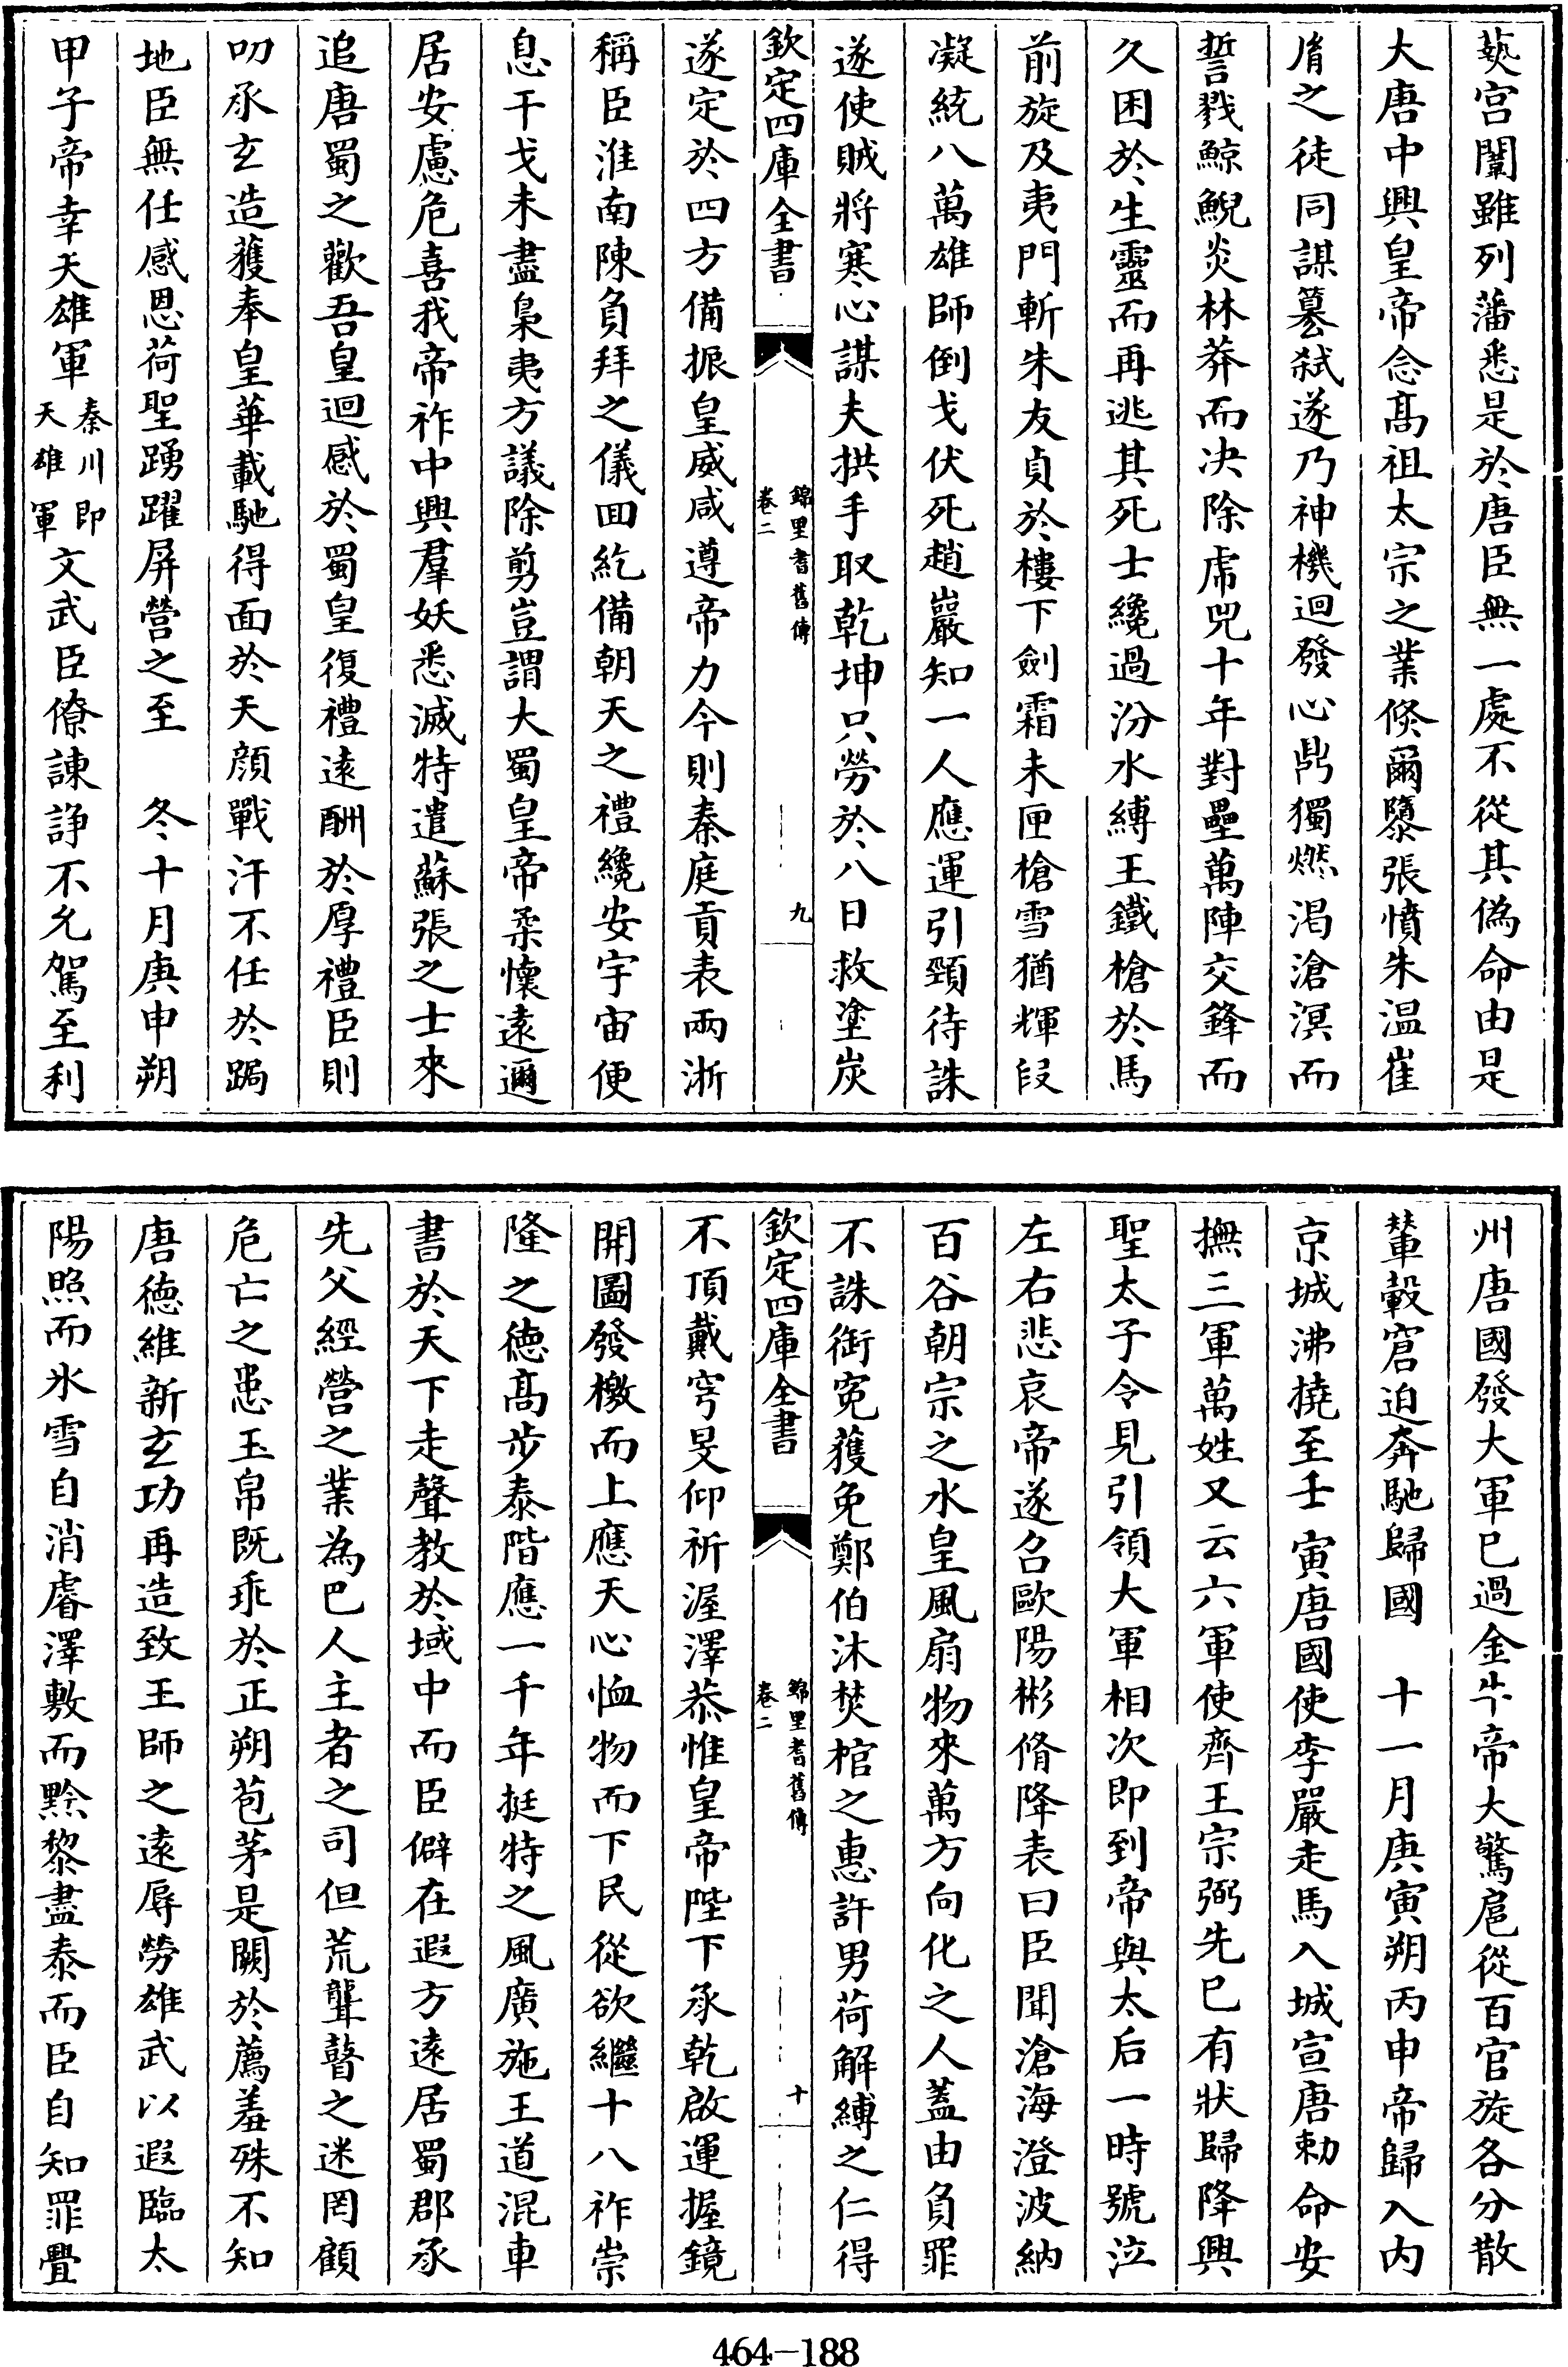 爇宮闈雖列藩悉是於唐臣無一處不從其偽命由是
大唐中興皇帝念髙祖太宗之業倐爾隳張憤朱温崔
𦙍之徒同謀簒弑遂乃神機迴發心鼎獨燃渇滄溟而
誓戮鯨鯢炎林莽而決除虎兕十年對壘萬陣交鋒而
久困於生靈而再逃其死士纔過汾水縛王鐵槍於馬
前旋及夷門斬朱友貞於樓下劍霜未匣槍雪猶輝段
凝統八萬雄師倒戈伏死趙巖知一人應運引頸待誅
遂使賊將寒心謀夫拱手取乾坤只勞於八日救塗炭
欽定四庫全書
錦里耆舊傳
卷二
九
遂定於四方備振皇威咸遵帝力今則秦庭貢表兩浙
稱臣淮南陳負拜之儀囬紇備朝天之禮纔安宇宙便
息干戈未盡梟夷方議除剪豈謂大蜀皇帝柔懷遠邇
居安慮危喜我帝祚中興羣妖悉滅特遣蘇張之士來
追唐蜀之歡吾皇迴感於蜀皇復禮逺酬於厚禮臣則
叨承玄造獲奉皇華載馳得面於天顔戰汗不任於跼
地臣無任感恩荷聖踴躍屏營之至　冬十月庚申朔
甲子帝幸天雄軍秦川即天雄軍文武臣僚諫諍不允駕至利
州唐國發大軍已過金牛帝大驚扈從百官旋各分散
輦轂窘迫奔馳歸國　十一月庚寅朔丙申帝歸入内
京城沸撓至壬寅唐國使李嚴走馬入城宣唐勅命安
撫三軍萬姓又云六軍使齊王宗弼先已有狀歸降興
聖太子令見引領大軍相次即到帝與太后一時號泣
左右悲哀帝遂召歐陽彬脩降表曰臣聞滄海澄波納
百谷朝宗之水皇風扇物來萬方向化之人蓋由負罪
不誅銜寃獲免鄭伯沐焚棺之惠許男荷解縛之仁得
欽定四庫全書
錦里耆舊傳
卷二
十
不頂戴穹旻仰祈渥澤恭惟皇帝陛下承乾啟運握鏡
開圖發檄而上應天心恤物而下民從欲繼十八祚崇
隆之德髙步泰階應一千年挺特之風廣施王道混車
書於天下走聲教於域中而臣僻在遐方遠居蜀郡承
先父經營之業為巴人主者之司但荒聾瞽之迷罔顧
危亡之患玉帛既乖於正朔苞茅是闕於薦羞殊不知
唐德維新玄功再造致王師之遠辱勞雄武以遐臨太
陽照而氷雪自消睿澤敷而黔黎盡泰而臣自知罪舋
464—188